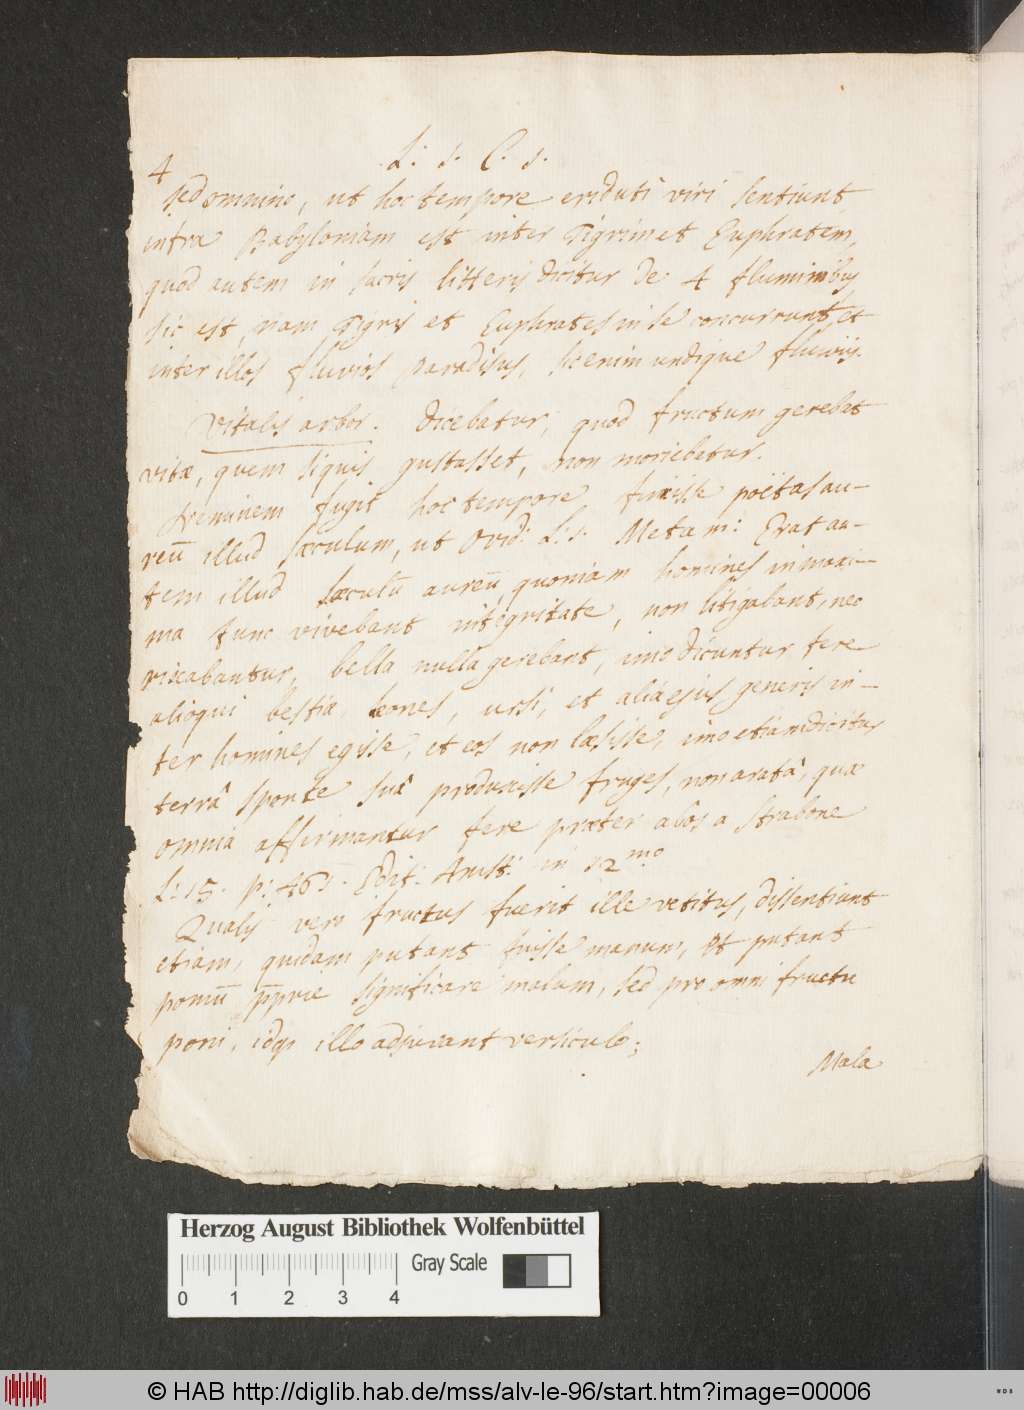 4
L: 1. C. 1.
sed omnino, ut hoc tempore eriduti viri sentiunt
infra Babyloniam est inter Tigrim et Euphratem,
quod autem in sacris litteris dicitur de 4 fluminibus
sic est, nam Tigris et Euphrates in se concurrunt et
inter illos fluvios paradisus, sic enim undique fluviis.
Vitalis arbor. dicebatur, quod fructum gerebat
vitæ, quem siquis gustasset, non moriebatur.
Neminem fugit hoc tempore fuisse poëtas au-
reū illud sæculum, ut Ovid: L: 1. Metam: Erat au-
tem illud sæculū aureū, quoniam homines in maxi-
ma tunc vivebant integritate, non litigabant, nec
rixabantur, bella nulla gerebant, imo dicuntur feræ
alioqui bestiæ, leones, ursi, et alia ejus generis in-
ter homines egisse, et eos non læsisse, imo etiam dicitur
terrâ sponte suâ produxisse fruges, non aratâ, quæ
omnia affirmantur fere præter alos a Strabone
L: 15. p: 461. Edit: Amst: in 12mo
Qualis vero fructus fuerit ille vetitus, dissentiunt
etiam, quidam putant fuisse malum, et putant
pomū p̄prie significare malum, sed pro omni fructu
poni, idq; illo adjuvant versiculo;
Mala
Herzog August Bibliothek Wolfenbüttel
Gray Scale
0 1 2 3 4
© HAB http://diglib.hab.de/mss/alv-le-96/start.htm?image=00006